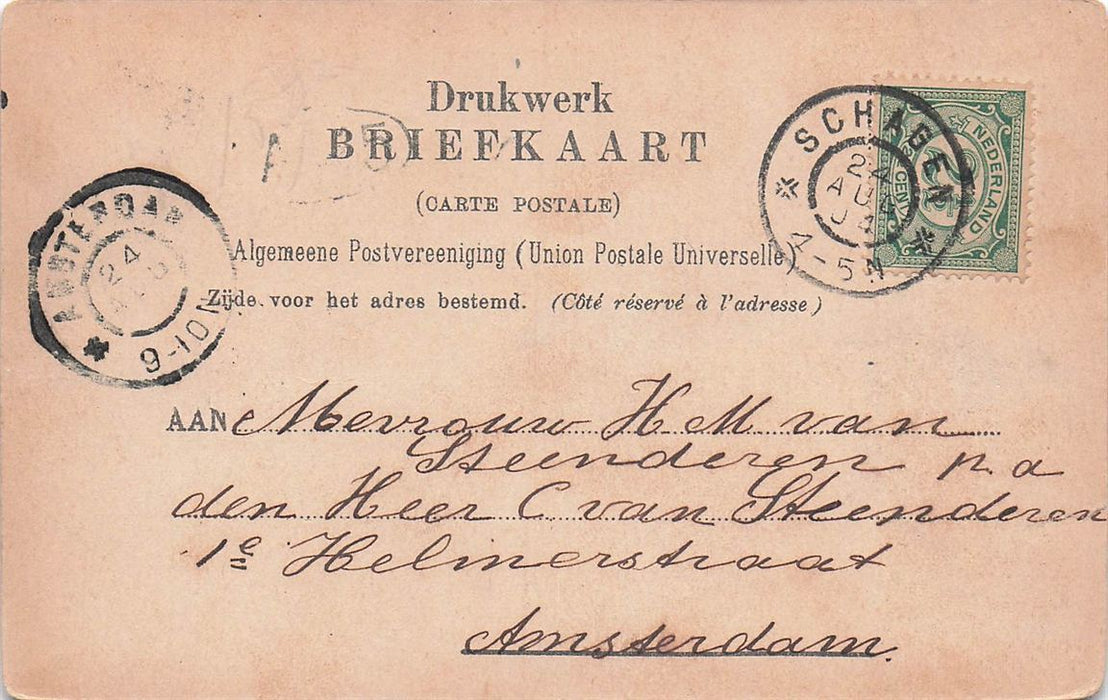 Drukwerk
BRIEFKAART
(CARTE POSTALE)
Algemeene Postvereeniging (Union Postale Universelle)
Zijde voor het adres bestemd. (Côté réservé à l'adresse)
SCHAGEN
24
AUG
04
4-5N
NEDERLAND
2½
CENT
AMSTERDAM
24
9-10N
AAN Mevrouw H M van
Steenderen p. a
den Heer C van Steenderen
1e Helmerstraat
Amsterdam.